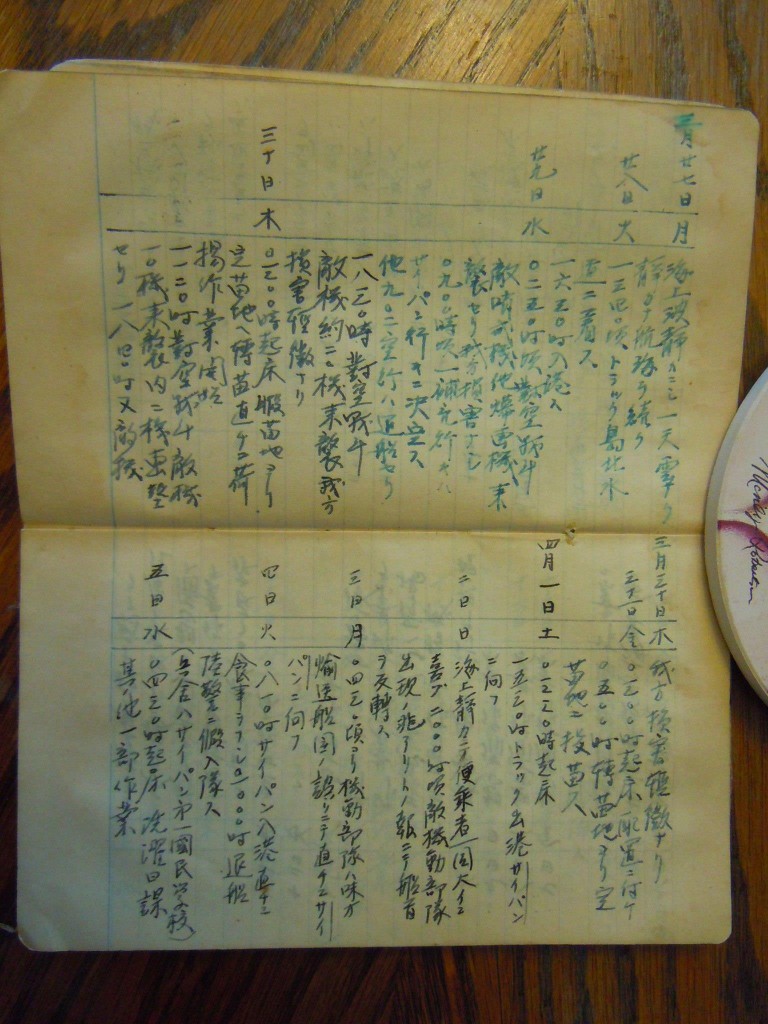 三月廿七日 月 海上波静カニシ一天雲ナク
静カナ航海ヲ続ク
廿八日 火 一三四〇頃、トラック島北水
道ニ着ス
一六五〇吋入港ス
廿九日 水 〇二五〇吋頃 對空戦斗
敵哨戒機他爆連機来
襲セリ我方損害ナシ
〇九〇〇時頃
サイパン行キニ決定ス
他九〇二空行ハ退船セリ
一八三〇時 對空戦斗
敵機約二〇機来襲我方
損害軽微ナリ
三十日 木 〇三〇〇時起床 假錨地ヨリ
定錨地ヘ轉錨直チニ荷
揚作業開始
一一二〇吋對空戦斗敵機
一〇機来襲内二機撃墜
セリ 一八四〇吋又敵機
三月三十日 木 我方損害軽微ナリ
三十一日 金 〇三〇〇吋起床配置ニツキ
〇五〇〇吋轉錨地ヨリ定
錨地ニ投錨ス
四月一日 土 〇二三〇時起床
一五三〇吋トラック出港サイパン
ニ向フ
二日 日 海上静カニテ便乗者一同大イニ
喜ブ 二〇〇〇吋頃敵機動部隊
出現ノ兆アリトノ報ニテ船首
ヲ反轉ス
三日 月 〇四三〇頃ヨリ機動部隊ハ味方
輸送船團ノ誤リニテ直チニサイ
パンニ向フ
四日 火 〇八一〇吋サイパン入港直チニ
食事ヲナシ一〇〇〇吋退船
陸警ニ假入隊ス
(兵舎ハサイパン第一國民学校)
五日 水 〇四三〇吋起床 洗濯日課
其ノ他一部作業
Monley Robertson